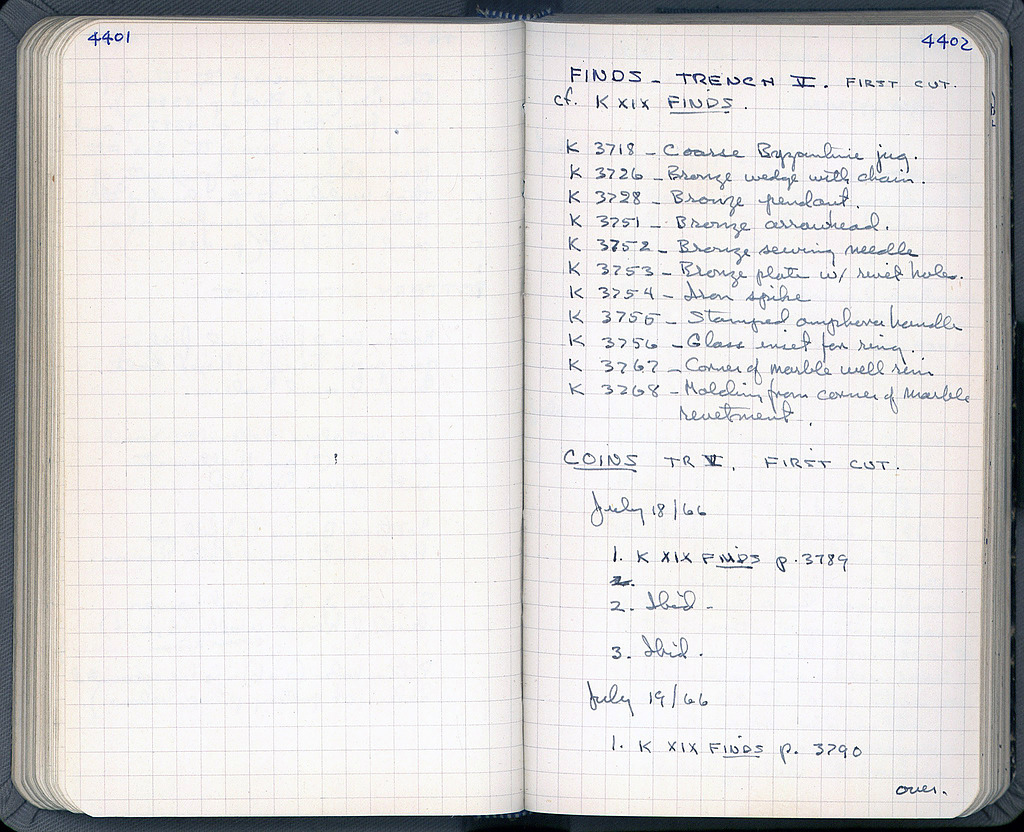 4401
4402
FINDS - TRENCH V. FIRST CUT.
cf. K XIX FINDS.
K 3718 - Coarse Byzantine jug.
K 3726 - Bronze wedge with chain.
K 3728 - Bronze pendant.
K 3751 - Bronze arrowhead.
K 3752 - Bronze sewing needle
K 3753 - Bronze plate w/ rivet holes.
K 3754 - Iron spike
K 3755 - Stamped amphora handle
K 3756 - Glass inset for ring.
K 3767 - Corner of marble well rim
K 3768 - Molding from corner of marble
revetment.
COINS TR V. FIRST CUT.
July 18/66
1. K XIX FINDS p. 3789
2.
2. Ibid.
3. Ibid.
July 19/66
1. K XIX FINDS p. 3790
over.